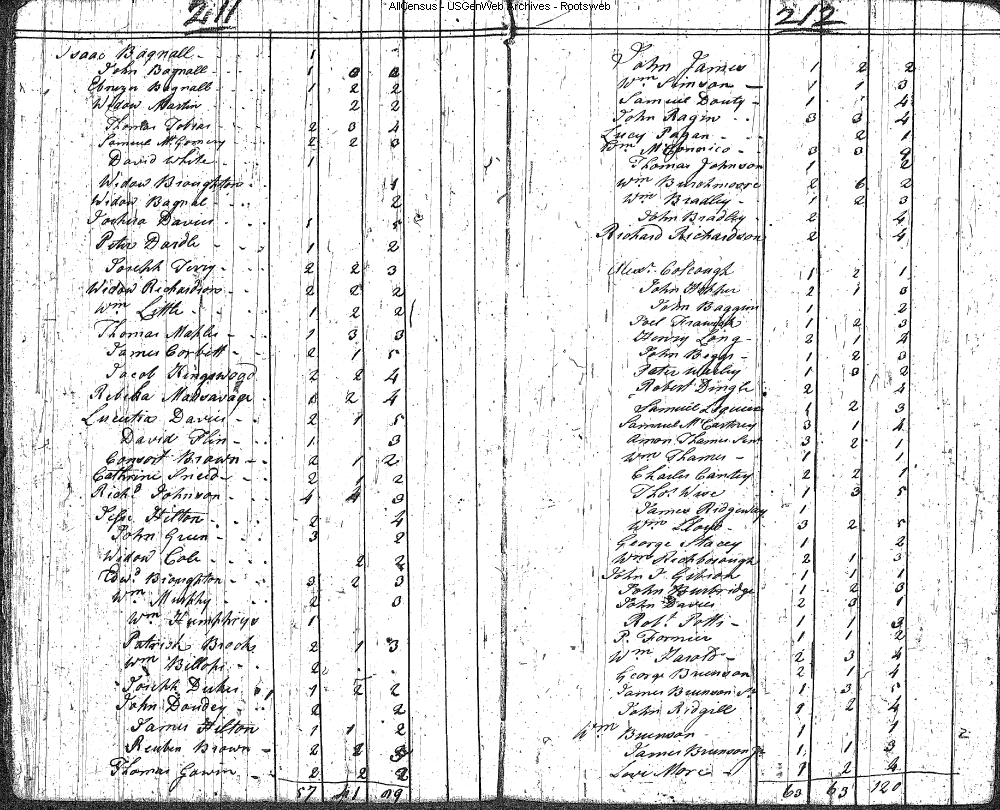 AllCensus - USGenWeb Archives - Rootsweb
211
Isaac Bagnall 1
John Bagnall 1
Ebnezer Bagnall 1 2 2
Widow Martin 2 2
Thomas Tobias 2 3 4
Samuel McGomery 2 2 3
David White 1
Widow Broughton 1
Widow Bagnal 2
Joshua Davis 1 5
Peter Dardle 1 2
Joseph Terry 2 2 3
Widow Richardson 2 2 2
Wm Little 1 2 2
Thomas Maples 1 3 3
James Corbett 2 1 5
Jacob Kingswood 2 2 4
Rebeka 2 4
Lucretia Davis 2 1 5
David Flin 1 3
Consort Brown 2 1 2
Cathrine Sneed 2 1 2
Richd Johnson 4 4 3
Jesse Hilton 2 4
John Green 3 2
Widow Cole 2 2
Edwd Broughton 3 2 3
Wm Murphy 2 3
Wm Humphrys 1
Patrick Brock 2 1 3
Wm Billops 2
Joseph Dukes 1 2 2
John Doudey 2 2
James Hilton 1 1 2
Reuben Brown 2 2 3
Thomas Gowin 2 2 2
57 41 99
212
John James 1 2 2
Wm Simson 1 1 3
Samuel Douty 1 4
John Ragin 3 3 4
Lucy Pagan 2 1
Wm 3 3
Thomas Johnson 1 2
Wm Burchmoore 2 6 2
Wm Bradley 1 2 3
John Bradley 2 4
Richard Richardson 2 4
Alexr Colcough 1 2 1
John 2 1
John Baggin 1 2
Joel 1 2 3
Henry Long 2 1 4
John Beggs 1 2 3
Peter Warley 1 3 2
Robert Dingle 2 4
Samuel 1 2 3
Samuel McCartney 3 1 4
Amon Thames Senr 3 2 1
Wm Thames 1 1
Charles Cantey 2 2 1
Thos Wise 1 3 5
James Ridgeway 1
Wm Lloyd 3 2 5
George Stacey 1 2
Wm Richborough 2 1 3
John J Gibson 1 1 1
John Burbridge 1 2 3
John Davies 2 3 1
Robt Potts 1 1 3
P. Fornier 1 1 2
Wm Harold 2 3 4
George Brunson 2 1 4
James Brunson Sr 1 3 5
John Ridgill 1 2 4
Wm Brunson 1 1 2
James Brunson Jr 1 1 3
Love More 1 2 4
63 63 120